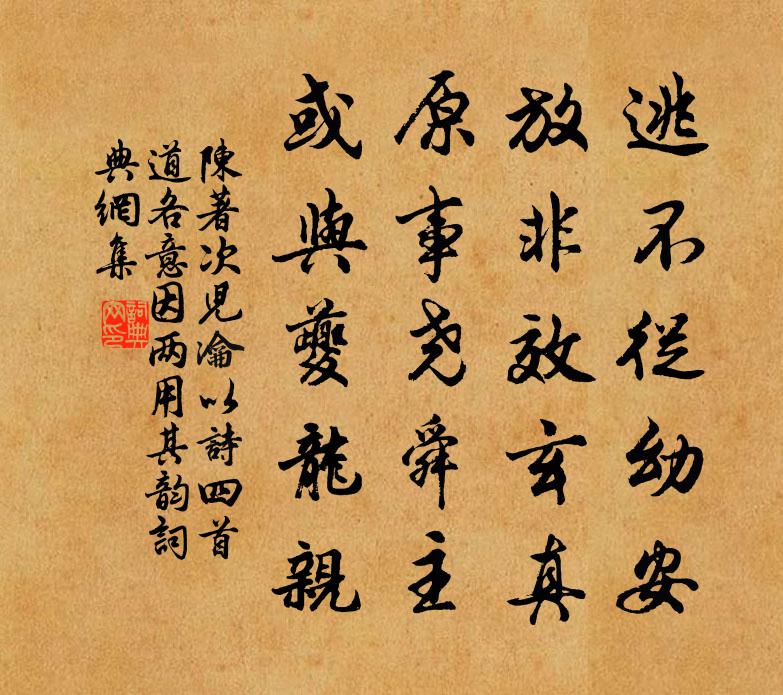 逃不從幼安
放非效玄真
原事尧舜主
或與夔龍親
陳著次兒瀹以詩四首
道各意因两用其韵詞
典網集
詞典
网印